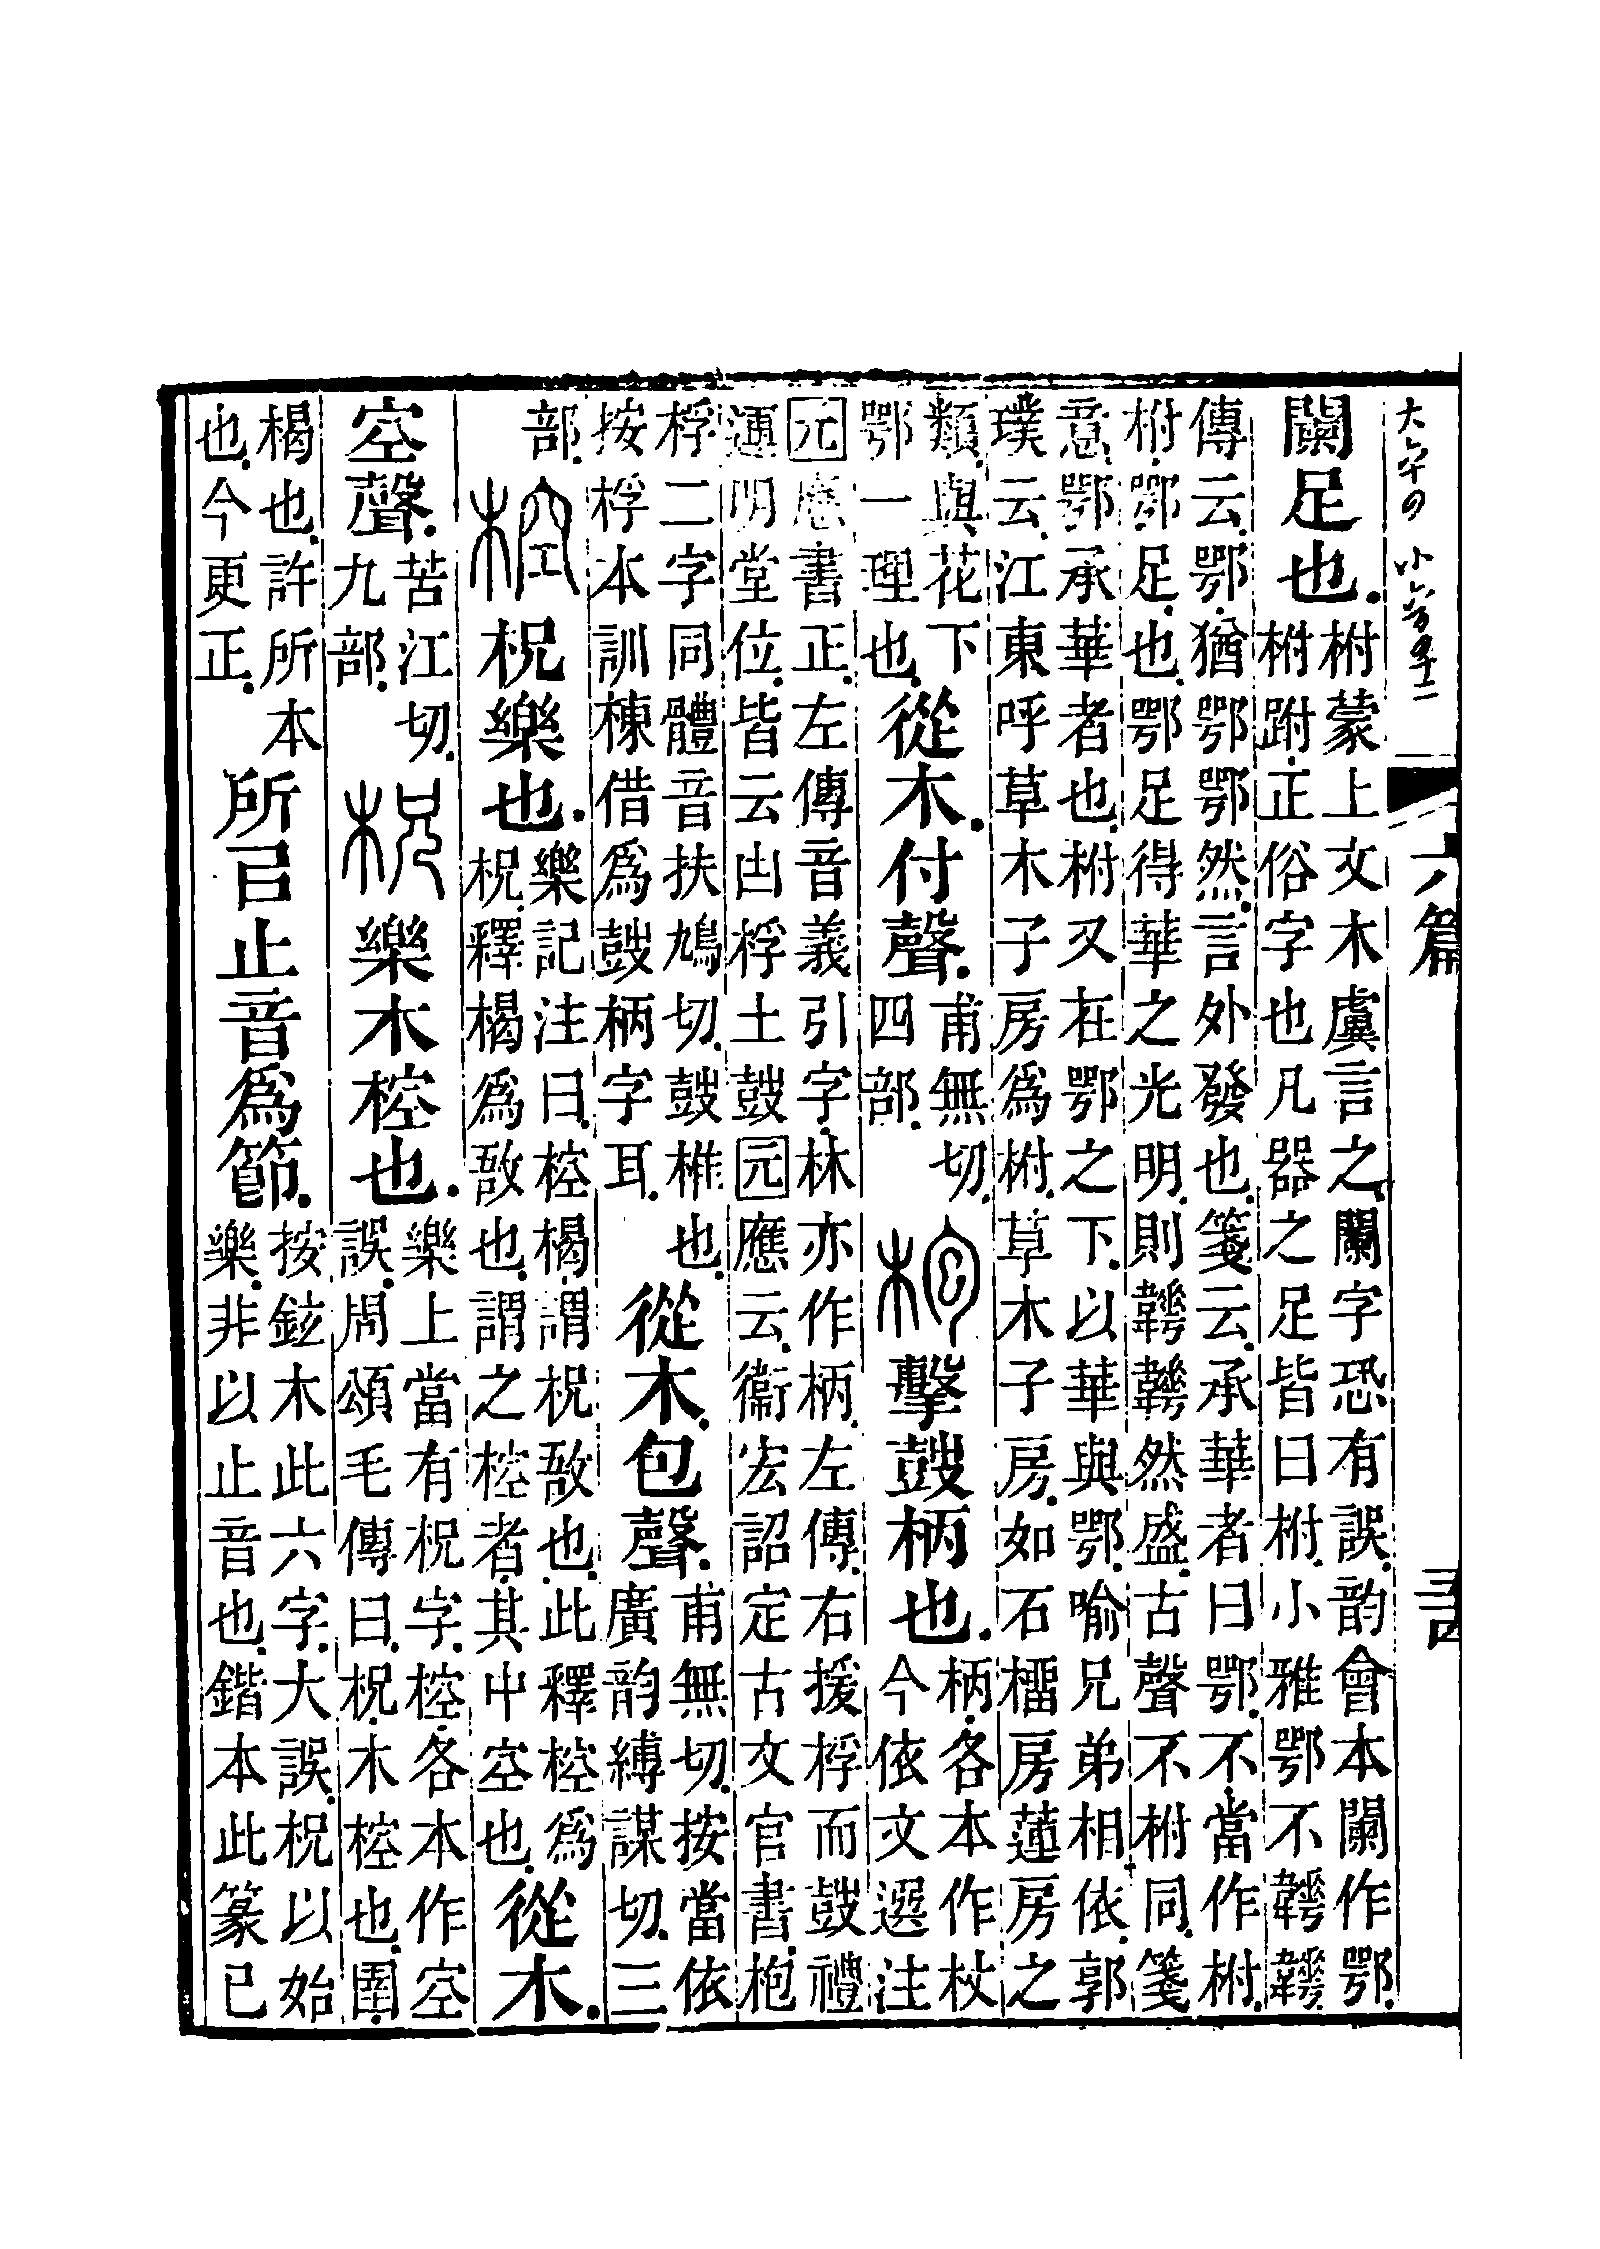 六篇
闌足也.柎蒙上文木虞言之.闌字恐有誤.韵會本闌作鄂.柎跗.正俗字也凡器之足皆曰柎.小雅鄂不韡韡.
傳云.鄂猶鄂鄂然.言外發也.箋云.承華者曰鄂.不當作柎.柎.鄂足也.鄂足得華之光明.則韡韡然盛.古聲不柎同.箋
意.鄂承華者也.柎又在鄂之下.以華與鄂.喻兄弟相依.郭璞云.江東呼草木子房爲柎.草木子房.如石橊房蓮房之
類.與花下鄂一理也.從木.付聲.甫無切.四部.枹擊鼓柄也.柄.各本作杖今依文選注
元應書正.左傳音義引字林亦作柄.左傳.右援桴而鼓.禮運明堂位.皆云凷桴土鼓元應云.衞宏詔定古文官書.枹
桴二字同體音扶鳩切.鼓椎也.按桴本訓棟借爲鼓柄字耳.從木.包聲.甫無切.按當依廣韵縛謀切.三
部.椌柷樂也.樂記注曰.椌楬.謂柷敔也.此釋椌爲柷.釋楬爲敔也.謂之椌者.其中空也.從木.
空聲.苦江切.九部.柷樂木椌也.樂上當有柷字.椌.各本作空誤.周頌毛傳曰.柷.木椌也.圉.
楬也.許所本也.今更正.所㠯止音爲節.按鉉木此六字.大誤.柷以始樂.非以止音也.鍇本此篆已